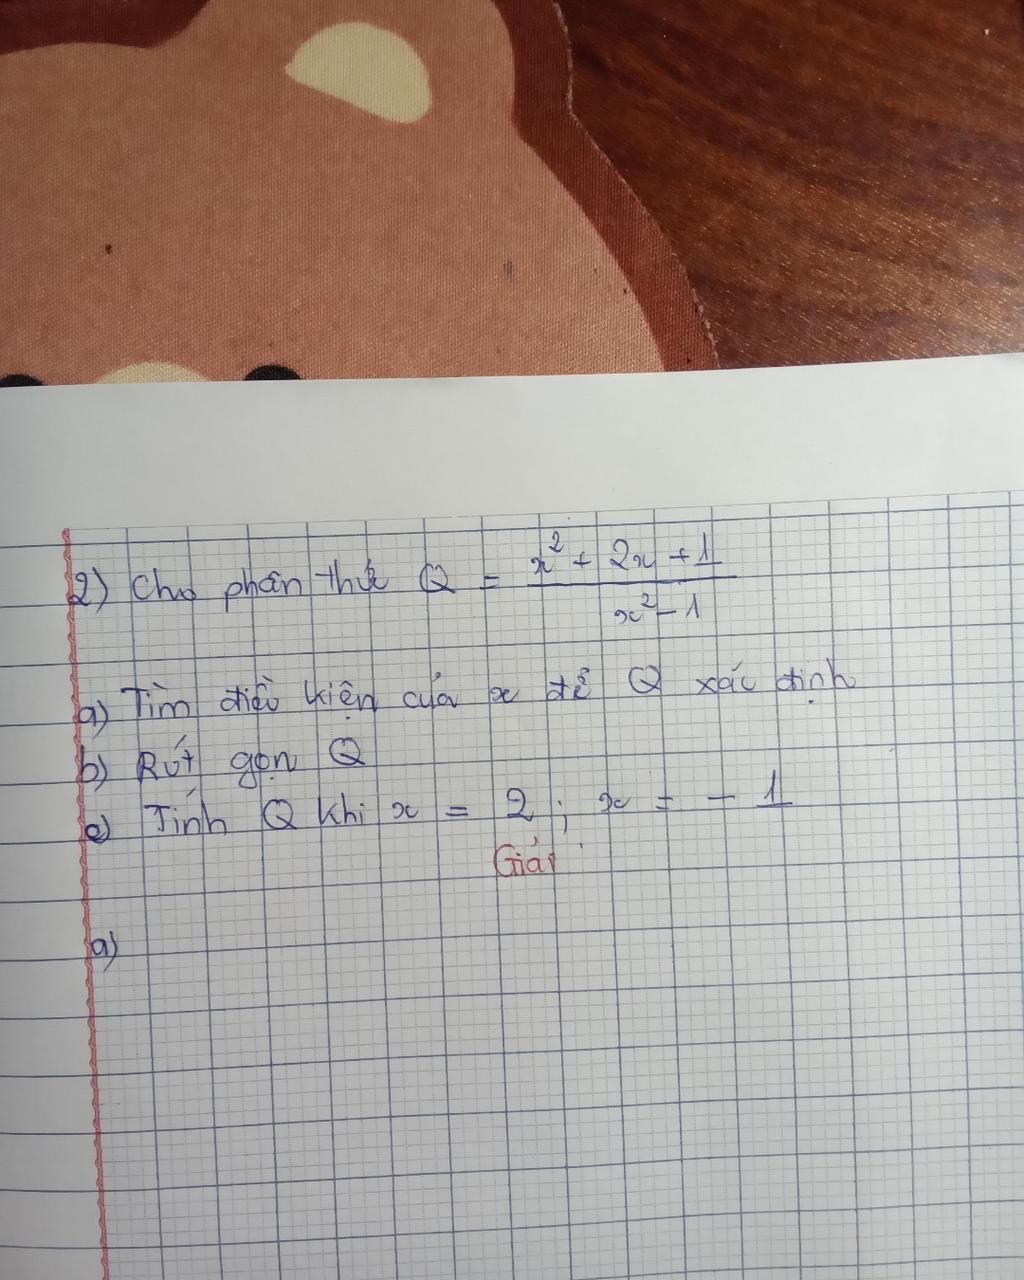 2) Cho phân thức Q = \frac{x^2 + 2x + 1}{x^2 - 1}
a) Tìm điều kiện của x để Q xác định
b) Rút gọn Q
c) Tính Q khi x = 2 ; x = - 1
Giải
a)